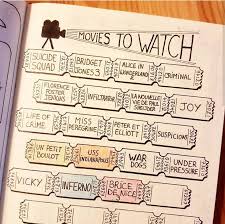 MOVIES TO WATCH
SUICIDE SQUAD
BRIDGET JONES 3
ALICE IN WONDERLAND
CRIMINAL
FLORENCE FOSTER JENKINS
INFILTRATOR
LA NOUVELLE VIE DE PAUL SNEIJDER
JOY
LIFE OF CRIME
MISS PEREGRINE
PETER ET ELLIOTT
SUSPICIONS
UN PETIT BOULOT
USS INDIANAPOLIS
WAR DOGS
UNDER PRESSURE
VICKY
INFERNO
BRICE DE NICE